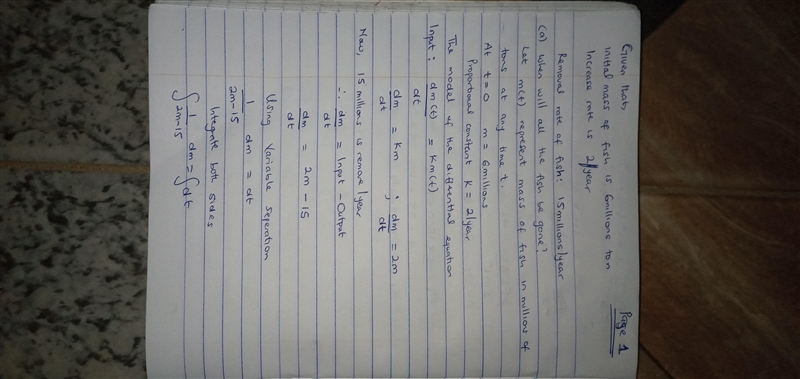 Page 1
Given that,
Initial mass of fish is 6millions ton
Increase rate is 2/year
Removal rate of fish: 15millions/year
(a) When will all the fish be gone?
Let m(t) represent mass of fish in million of
tons at any time t.
At t=0 m=6millions
Proportional constant K=2/year
The model of the differential equation
Input: dm(t)/dt = Km(t)
dm/dt = Km ; dm/dt = 2m
Now, 15millions is remove/year
∴ dm/dt = Input - Output
dm/dt = 2m - 15
Using Variable Seperation
1/2m-15 dm = dt
Integrate both sides
∫ 1/2m-15 dm = ∫dt